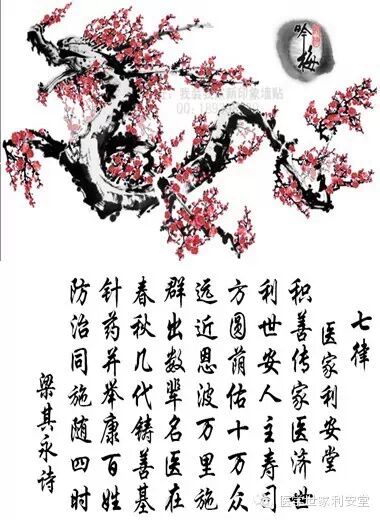 吟梅
新印象墙贴
七律
医家利安堂
积善传家医济世
利世安人主寿司
方圆荫估十万众
远近恩波万里施
群出数辈名医在
春秋几代铸善基
针药并举康百姓
防治同施随四时
梁其永诗
医学世家利安堂